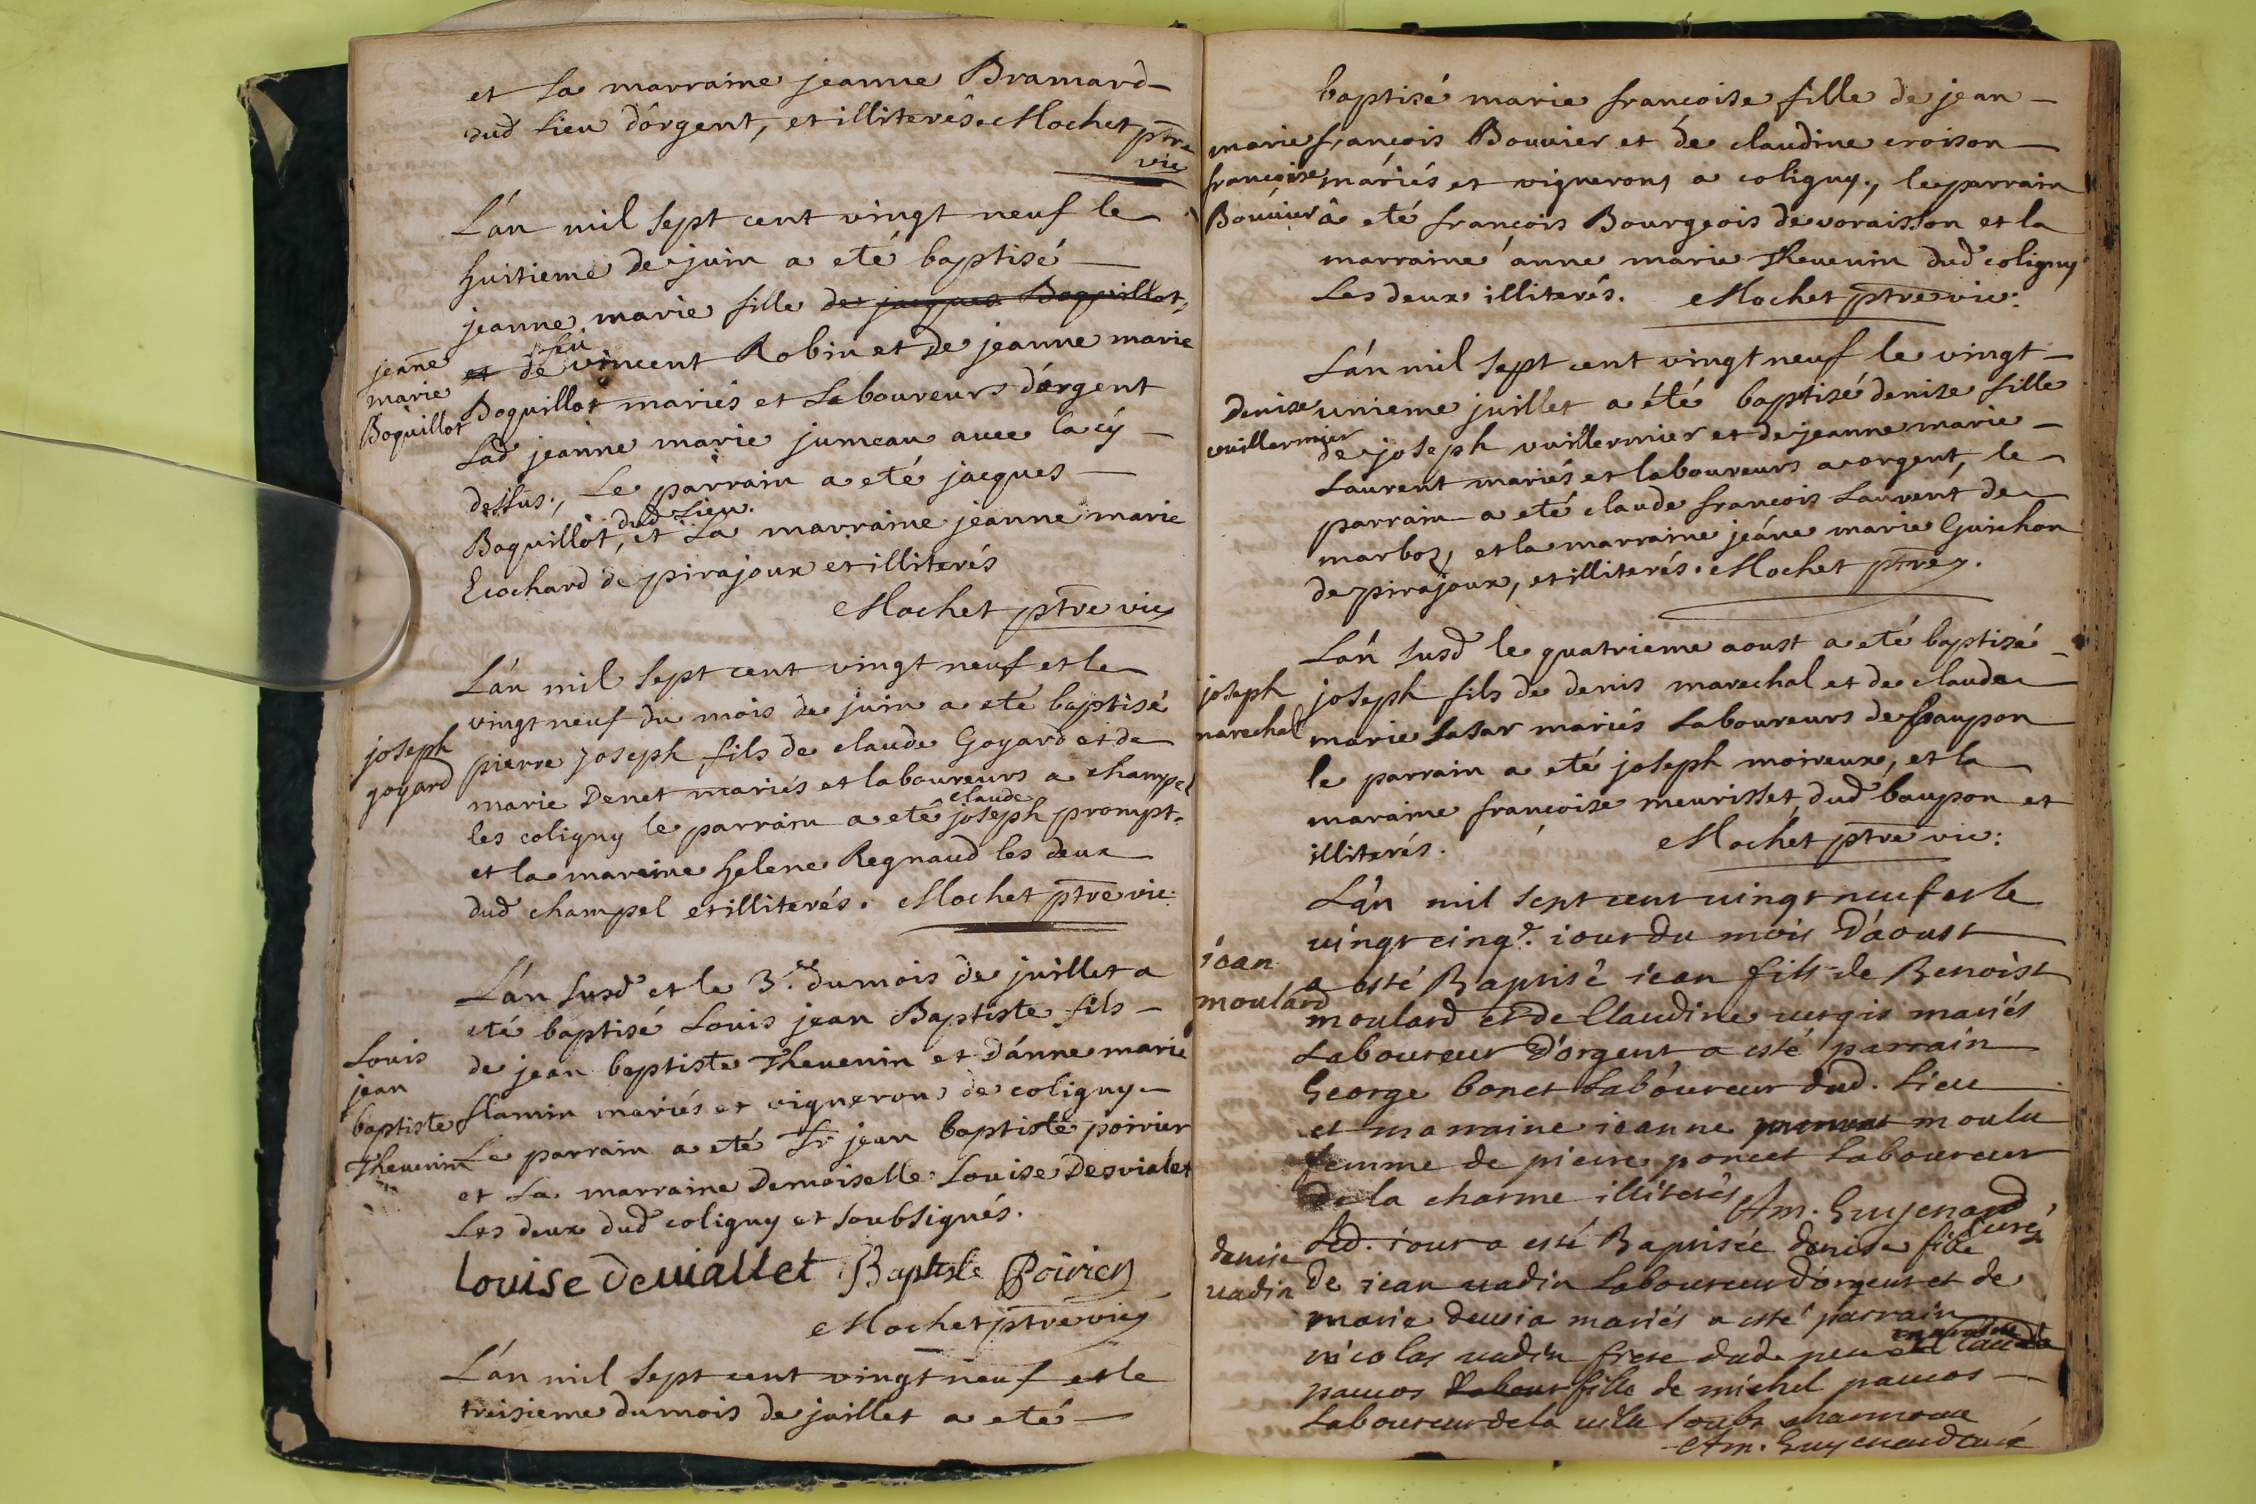 et la marraine jeanne Bramard
dud lieu d'orgent, et illiterés. Mochet ptre
vic
L'an mil sept cent vingt neuf le
huitieme de juin a eté baptisé
jeanne marie fille de jacques Boquillot
feu
et de vincent Robin et de jeanne marie
jeanne
marie
Boquillot
Boquillot mariés et Laboureurs d'orgent
Lad jeanne marie jumeau avec la cy
dessus, Le parrain a eté jacques
dud lieu.
Boquillot, et La marraine jeanne marie
Ecochard de pirajoux et illiterés
Mochet ptre vic
L'an mil sept cent vingt neuf et le
vingt neuf du mois de juin a eté baptisé
joseph
goyard
pierre joseph fils de claude Goyard et de
marie Denet mariés et laboureurs a champel
claude
les coligny le parrain a eté joseph prompt
et la mareine helene Regnaud les deux
dud champel et illiterés. Mochet ptre vic
L'an susd et le 3.e du mois de juillet a
eté baptisé Louis jean Baptiste fils
Louis
jean
baptiste
Thevenin
de jean baptiste Thevenin et d'anne marie
flamin mariés et vignerons de coligny
Le parrain a eté Sr jean baptiste poirier
et La marraine Demoiselle Louise Desvialet
Les deux dud coligny et soubsignés.
Louise Deviallet Baptiste Poirier
Mochet ptre vic
L'an mil sept cent vingt neuf et le
treisieme du mois de juillet a eté
baptisé marie francoise fille de jean
marie
francoise
Bouvier
françois Bouvier et de claudine croison
mariés et vignerons a coligny, le parrain
a eté françois Bourgeois de voraisson et la
marraine anne marie Thevenin dud coligny
Les deux illiterés. Mochet ptre vic:
L'an mil sept cent vingt neuf le vingt
Denise
vuillermier
unieme juillet a été baptisé denise fille
de joseph vuillermier et de jeanne marie
Laurent mariés et laboureurs a orgent, le
parrain a eté claude françois Laurent de
marboz, et la marraine jeáne marie Guichon
de pirajoux, et illiterés. Mochet ptre
L'an susd le quatrieme aoust a eté baptisé
joseph
marechal
joseph fils de denis marechal et de claude
marie Lasar mariés Laboureurs de baupon
le parrain a eté joseph moireux, et la
maraine françoise meurisset dud baupon et
illiterés. Mochet ptre vic:
L'an mil sept cent vingt neuf et le
vingt cinqe. iour du mois d'aoust
iean
moulard
a esté Baptisé iean fils de Benoist
moulard et de Claudine vergis mariés
Laboureur d'orgent a esté parrain
George bonet Laboureur dud. Lieu
et marraine ieanne moulu
femme de pierre poncet Laboureur
de la charme illiterés Am. Guyenard
curé
denise
vadin
Led. iour a esté Baptisée denise fille
de iean vadin Laboureur d'orgent et de
marie devia mariés a esté parrain
nicolas vadin frere dud.
paucos fille de michel paucos
Laboureur de la
Am. Guyenard curé